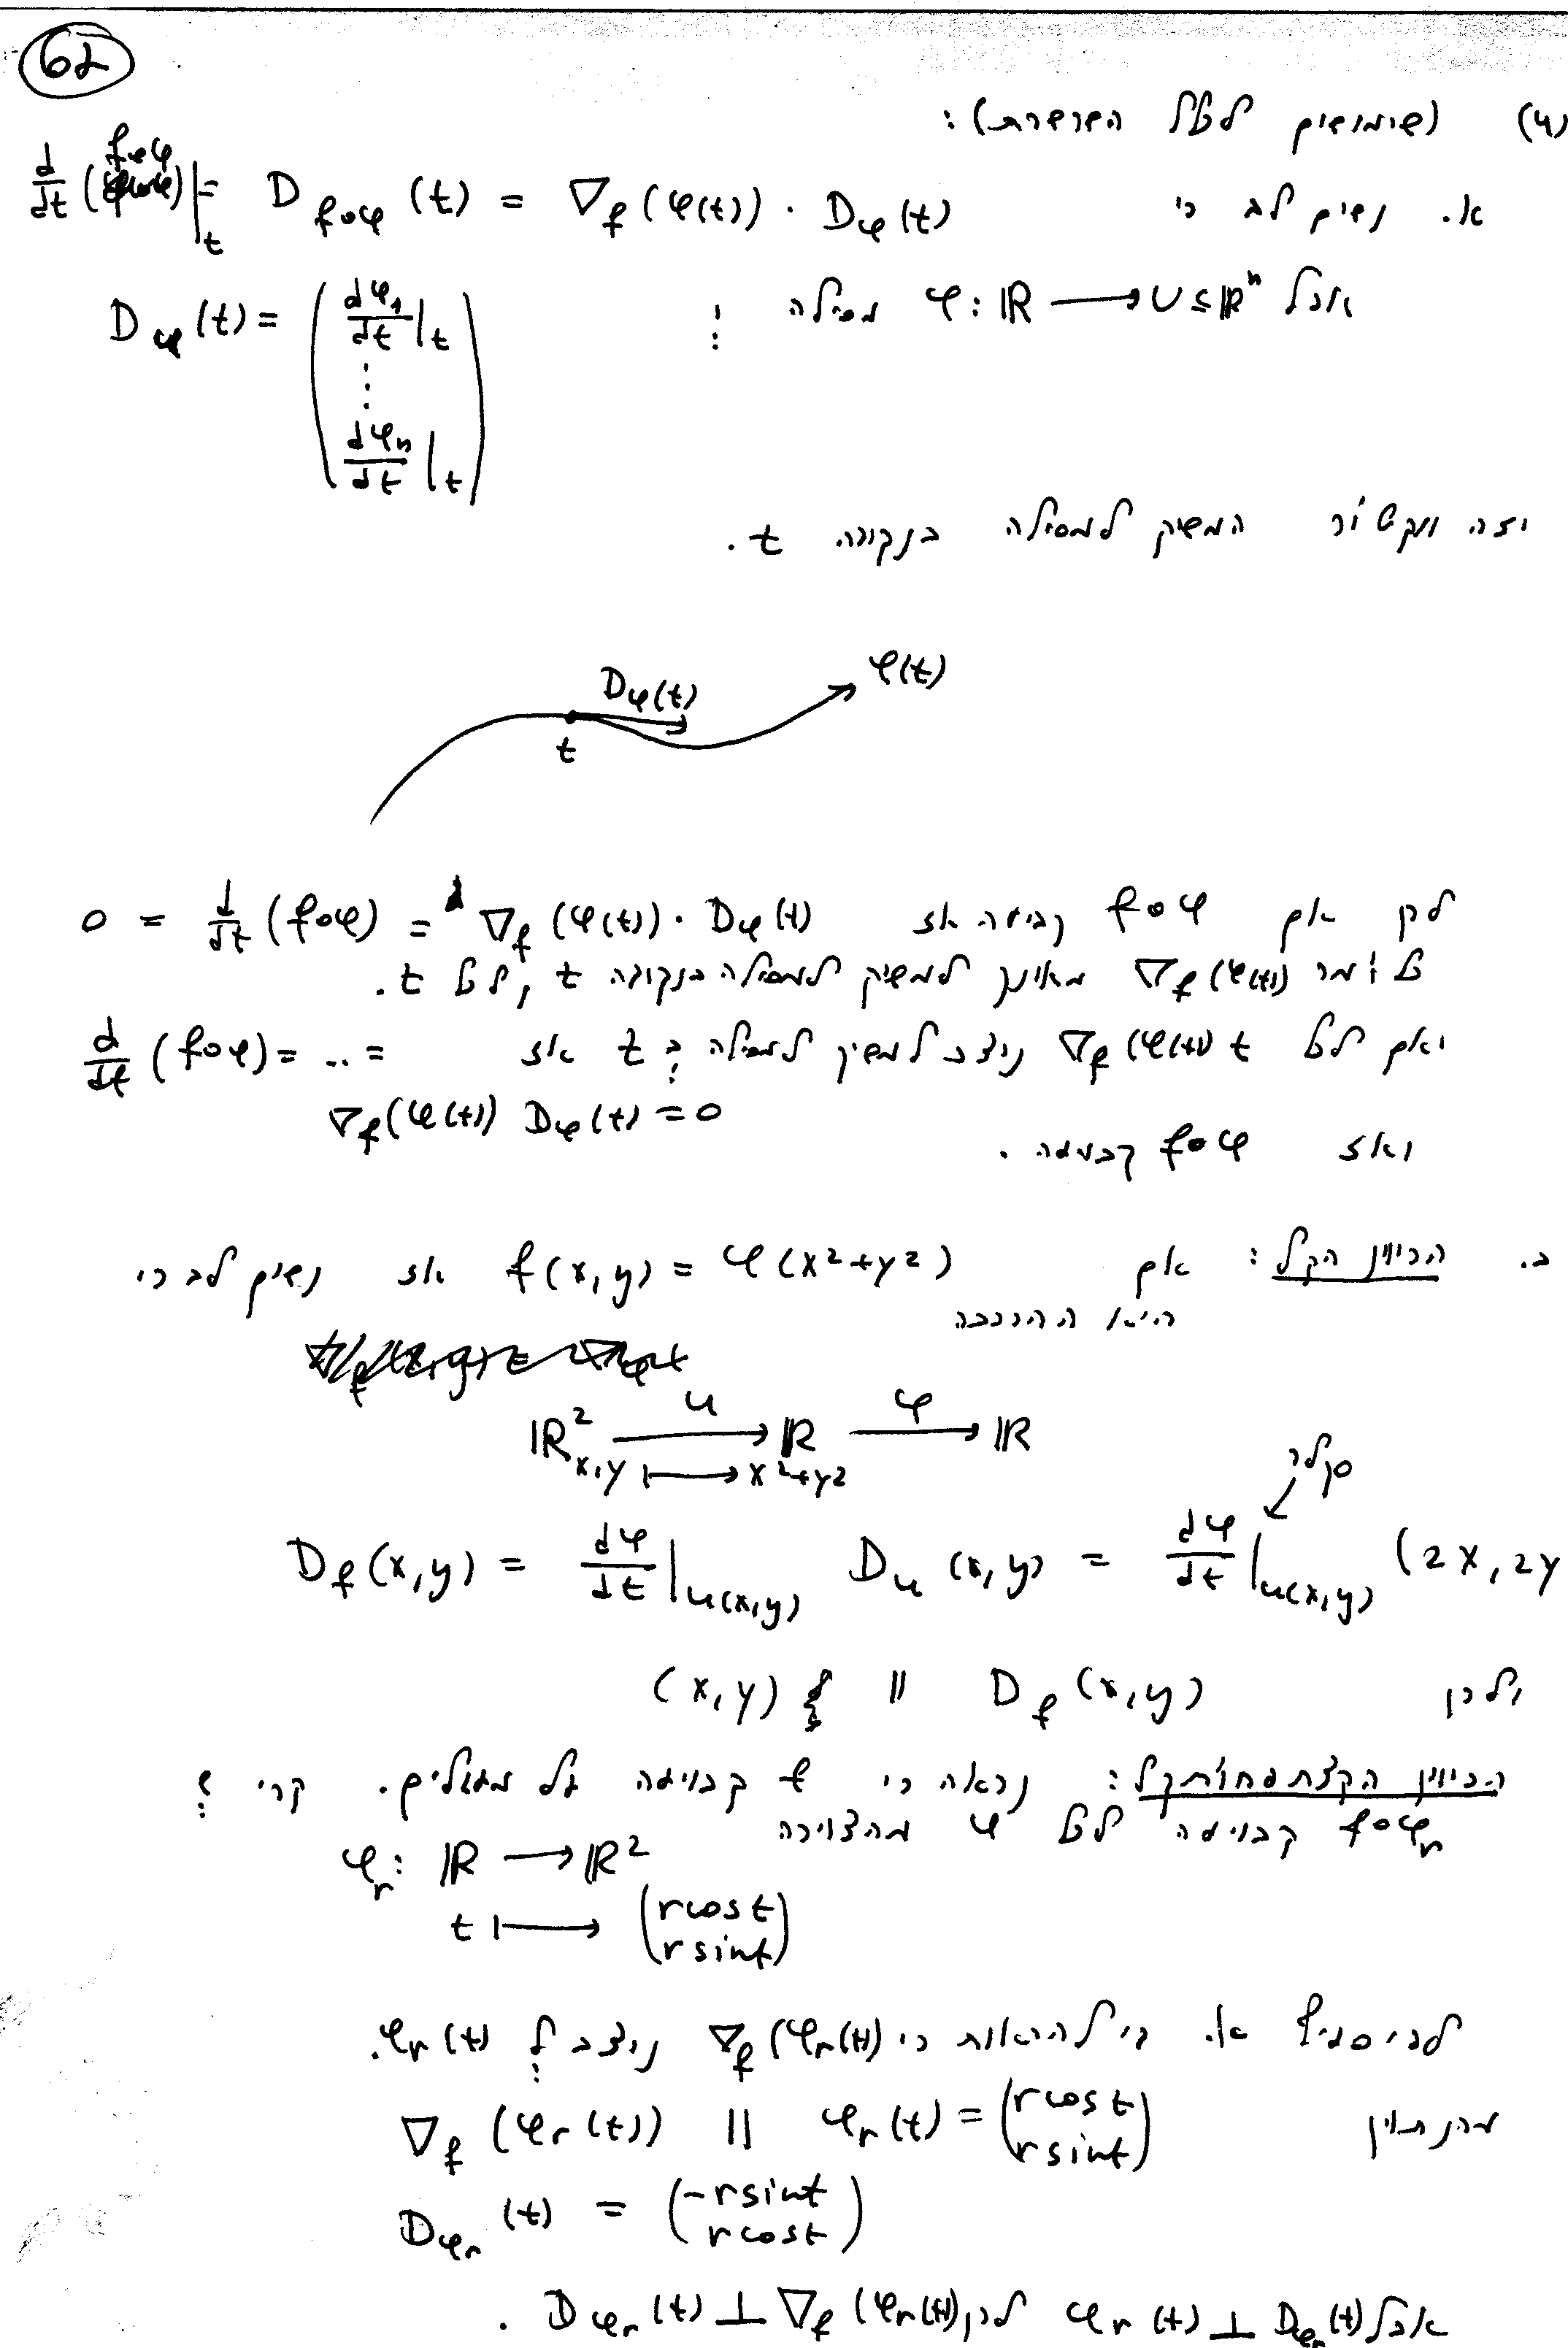 62
(4) (שימושים לכלל השרשרת):
א. נשים לב כי d/dt (f∘φ)|_t = D_{f∘φ}(t) = ∇_f(φ(t)) · D_φ(t)
אבל φ: ℝ ⟶ U ⊆ ℝⁿ מסילה : D_φ(t) = ( dφ₁/dt|_t ⋮ dφₙ/dt|_t )
וזה וקטור המשיק למסילה בנקודה t.
D_φ(t) φ(t)
t
לכן אם f∘φ קבועה אז 0 = d/dt (f∘φ) = ∇_f(φ(t)) · D_φ(t)
כלומר ∇_f(φ(t)) מאונך למשיק למסילה בנקודה t, לכל t.
ואם לכל t ∇_f(φ(t)) ניצב למשיק למסילה ב t אז d/dt (f∘φ) = ... =
∇_f(φ(t)) D_φ(t) = 0
ואז f∘φ קבועה.
ב. הכיוון הקל: אם f(x,y) = φ(x²+y²) אז נשים לב כי
היא ההרכבה
ℝ²_{x,y} —u→ ℝ —φ→ ℝ
x,y ⟼ x²+y²
סקלר
D_f(x,y) = dφ/dt|_{u(x,y)} D_u(x,y) = dφ/dt|_{u(x,y)} (2x,2y
ולכן D_f(x,y) ∥ (x,y)
הכיוון הקצת פחות קל: נראה כי f קבועה על מעגלים. קרי :
f∘φ_r קבועה לכל φ מהצורה
φ_r: ℝ ⟶ ℝ²
t ⟼ (r cos t r sin t)
לפי סעיף א. די להראות כי ∇_f(φ_r(t)) ניצב ל φ_r(t).
מהנתון ∇_f(φ_r(t)) ∥ φ_r(t) = (r cos t r sin t)
D_{φ_r}(t) = (-r sin t r cos t)
אבל φ_r(t) ⊥ D_{φ_r}(t) לכן, D_{φ_r}(t) ⊥ ∇_f(φ_r(t)).